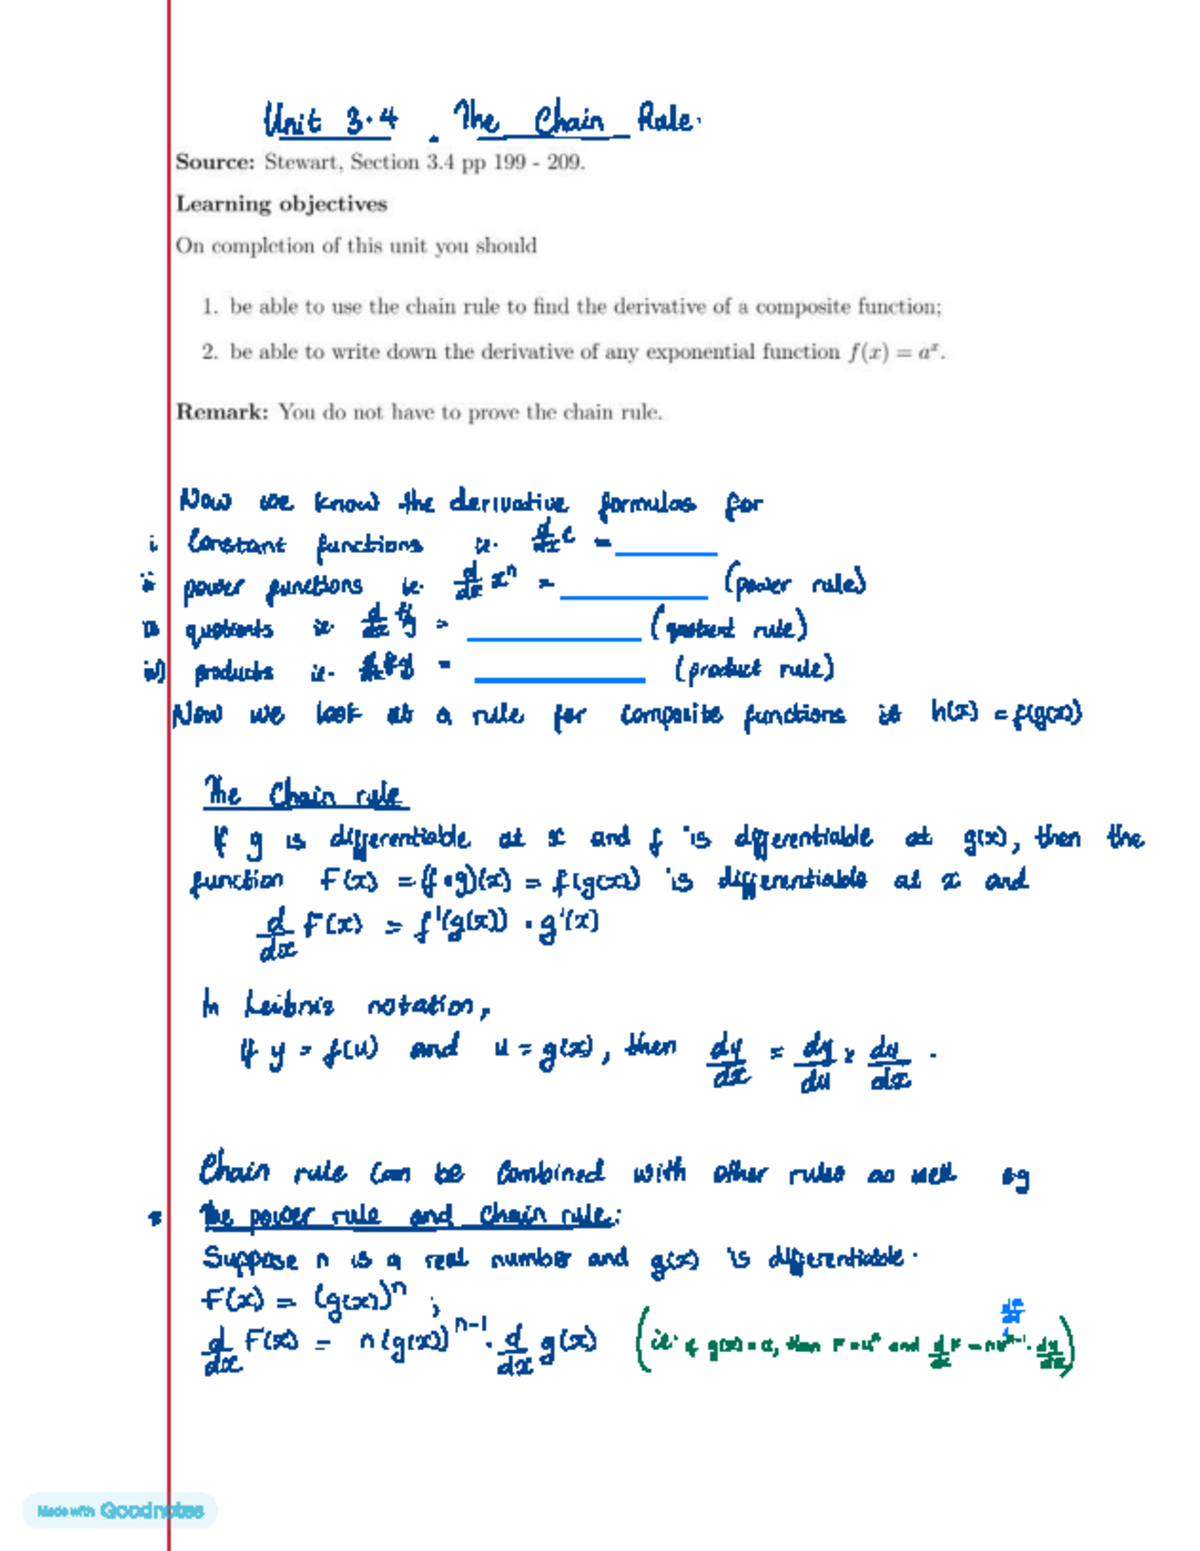 Unit 3.4 . The Chain Rule.
Source: Stewart, Section 3.4 pp 199 - 209.
Learning objectives
On completion of this unit you should
1. be able to use the chain rule to find the derivative of a composite function;
2. be able to write down the derivative of any exponential function f(x) = aˣ.
Remark: You do not have to prove the chain rule.
Now we know the derivative formulas for
i Constant functions ie. d/dx c = ______
ii power functions ie. d/dx xⁿ = ______ (power rule)
iii quotients ie. d/dx f/g = ______ (quotient rule)
iv) products ie. d/dx fg = ______ (product rule)
Now we look at a rule for composite functions ie h(x) = f(g(x))
The Chain rule
If g is differentiable at x and f is differentiable at g(x), then the
function F(x) = (f∘g)(x) = f(g(x)) is differentiable at x and
d/dx F(x) = f'(g(x)) · g'(x)
In Leibniz notation,
If y = f(u) and u = g(x), then dy/dx = dy/du × du/dx .
Chain rule can be combined with other rules as well eg
* The power rule and chain rule:
Suppose n is a real number and g(x) is differentiable.
F(x) = (g(x))ⁿ ;
d/dx F(x) = n(g(x))ⁿ⁻¹ · d/dx g(x) (ie. if g(x) = u, then F = uⁿ and d/dx F = nuⁿ⁻¹ · du/dx)
Made with Goodnotes